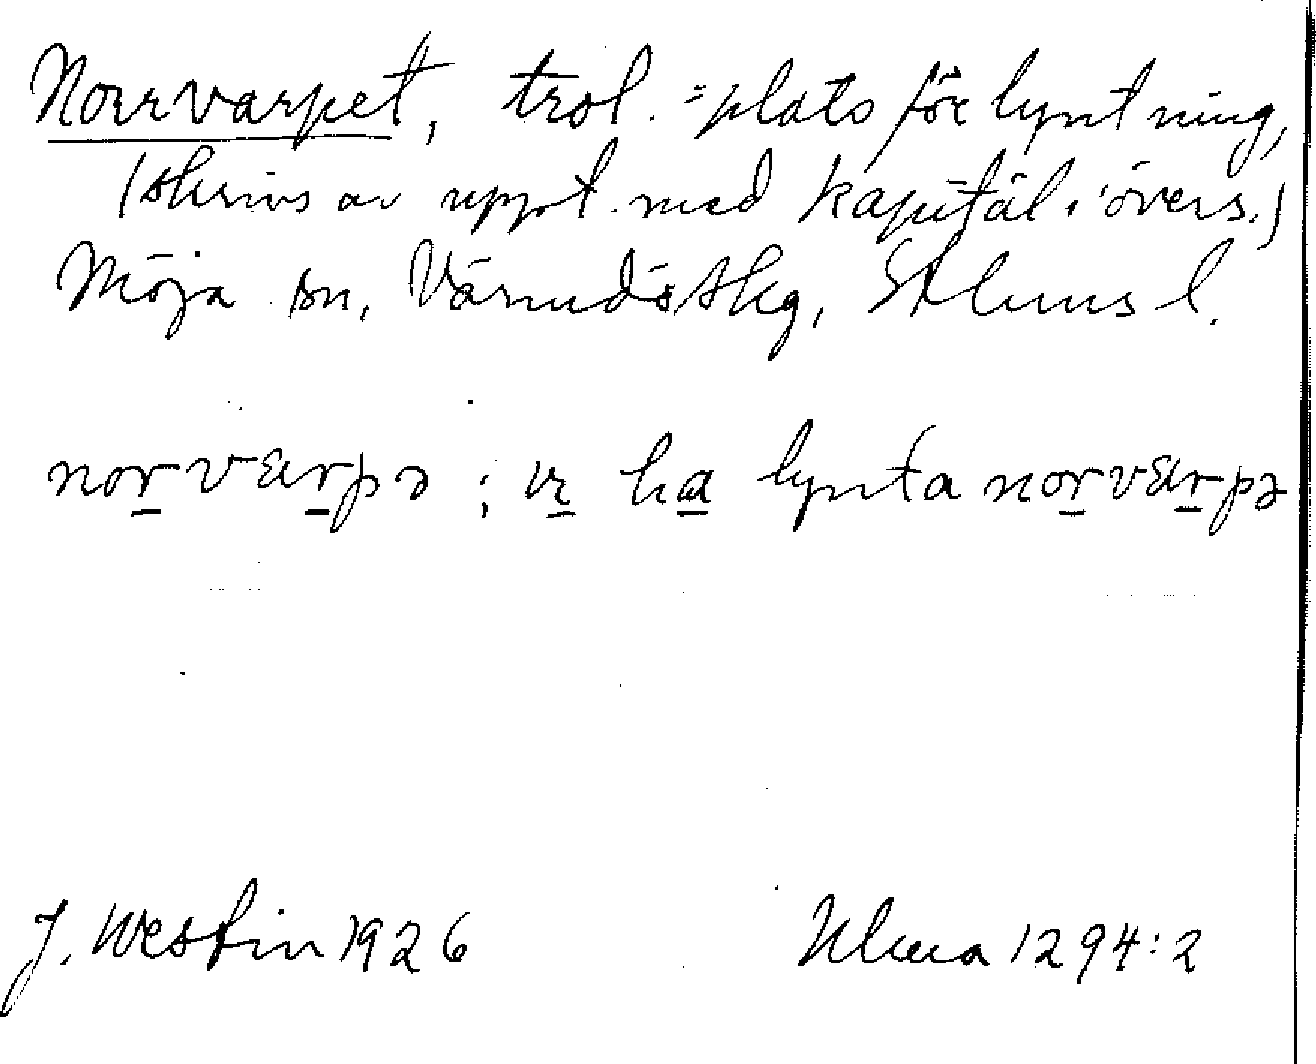 Norrvarpet, trol. =plats för lyntning,
(skrivs av uppt. med kapitäl i övers.)
Möja sn, Värmdö skg, Sthlms l.
norværpə ; vɪ ha lynta norværpə
J. Westin 1926 Ulma 1294:2